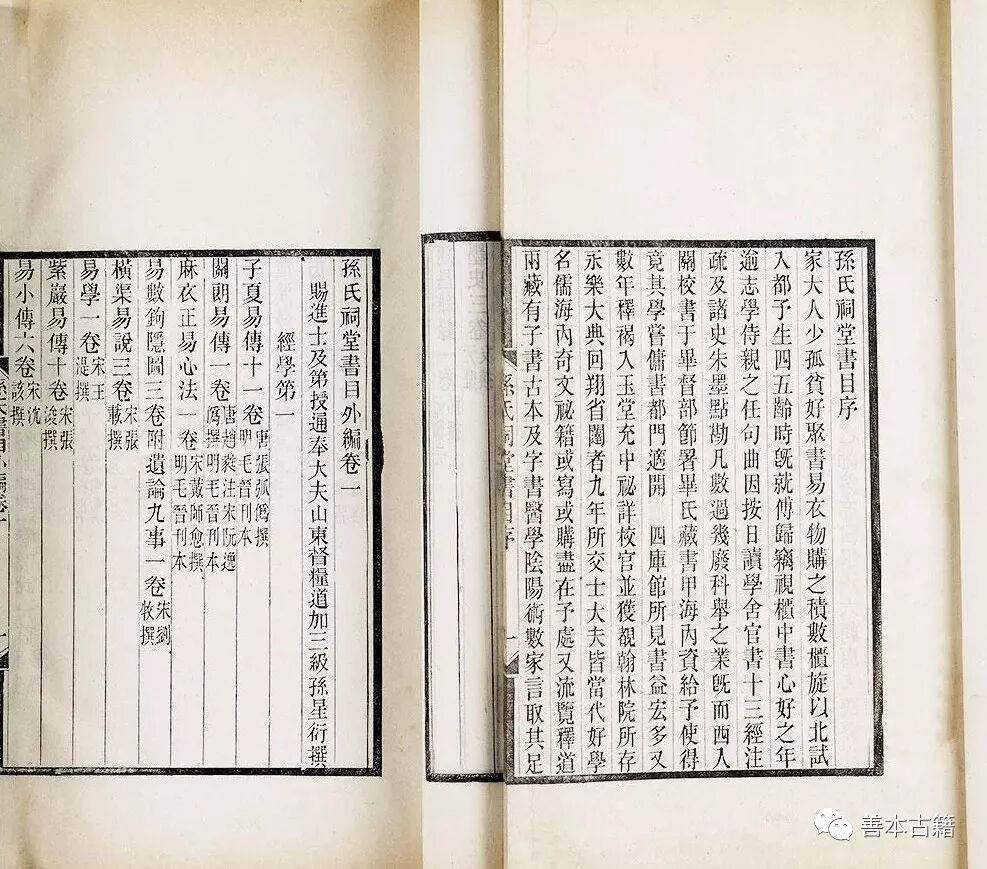 孫氏祠堂書目序
家大人少孤貧好聚書易衣物購之積數櫃旋以北試
入都予生四五齡時旣就傅歸竊視櫃中書心好之年
逾志學侍親之任句曲因按日讀學舍官書十三經注
疏及諸史朱墨點勘凡數過幾廢科舉之業旣而西入
關校書于畢督部節署畢氏藏書甲海內資給予使得
竟其學嘗傭書都門適開 四庫館所見書益宏多又
數年釋褐入玉堂充中祕詳校官並獲覩翰林院所存
永樂大典回翔省闥者九年所交士大夫皆當代好學
名儒海內奇文祕籍或寫或購盡在予處又流覽釋道
兩藏有子書古本及字書醫學陰陽術數家言取其足
孫氏祠堂書目序
一
孫氏祠堂書目外編卷一
賜進士及第授通奉大夫山東督糧道加三級孫星衍撰
經學第一
子夏易傳十一卷 唐張弧僞撰 明毛晉刊本
關朗易傳一卷 唐趙蕤注宋阮逸 僞撰明毛晉刊本
麻衣正易心法一卷 宋戴師愈撰 明毛晉刊本
易數鉤隱圖三卷附遺論九事一卷 宋劉 牧撰
橫渠易說三卷 宋張 載撰
易學一卷 宋王 湜撰
紫巖易傳十卷 宋張 浚撰
易小傳六卷 宋沈 該撰
善本古籍